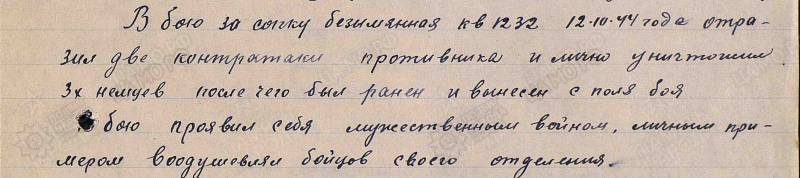 В бою за сопку безымянная кв 1232 12.10.44 года отра-
зил две контратаки противника и лично уничтожил
3х немцев после чего был ранен и вынесен с поля боя
В бою проявил себя мужественным войном, личным при-
мером воодушевлял бойцов своего отделения.